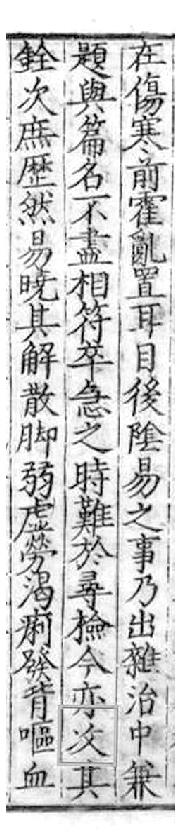 在傷寒前霍亂置耳目後陰易之事乃出雜治中兼
題與篇名不盡相符卒急之時難於尋檢今亦次其
銓次庶歷然易曉其解散脚弱虛勞渴痢發背嘔血